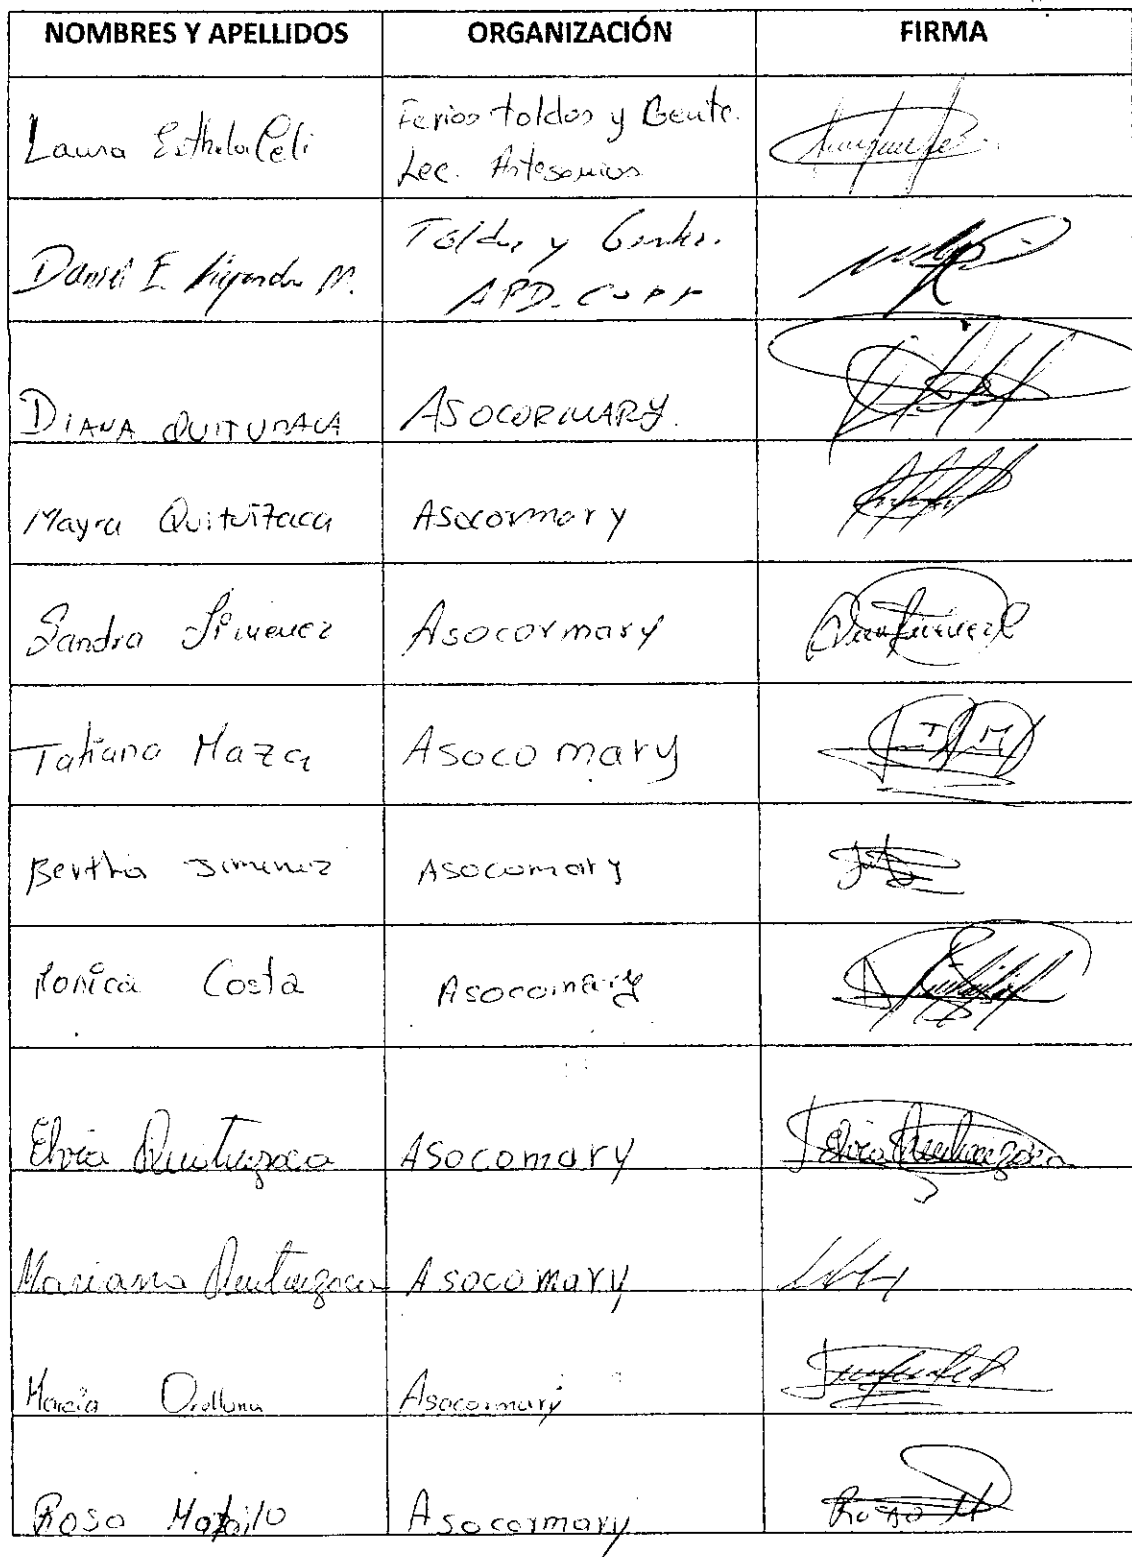 NOMBRES Y APELLIDOS ORGANIZACIÓN FIRMA
Laura Esthela Celi Ferias toldos y Gente.
Artesanias
Daniel E. M. Toldos y
APD-
DIANA ASOCORMARY.
Mayra Quituizaca Asocormary
Sandra Jimenez Asocormary
Tatiana Maza Asocomary T M
Bertha Jimenez Asocomary
Monica Costa Asocomary
Elvia Quituizaca Asocomary Elvia Quituizaca
Mariana Quituizaca Asocomary
Marcia Orellana Asocormary
Rosa Asocormary Rosa M